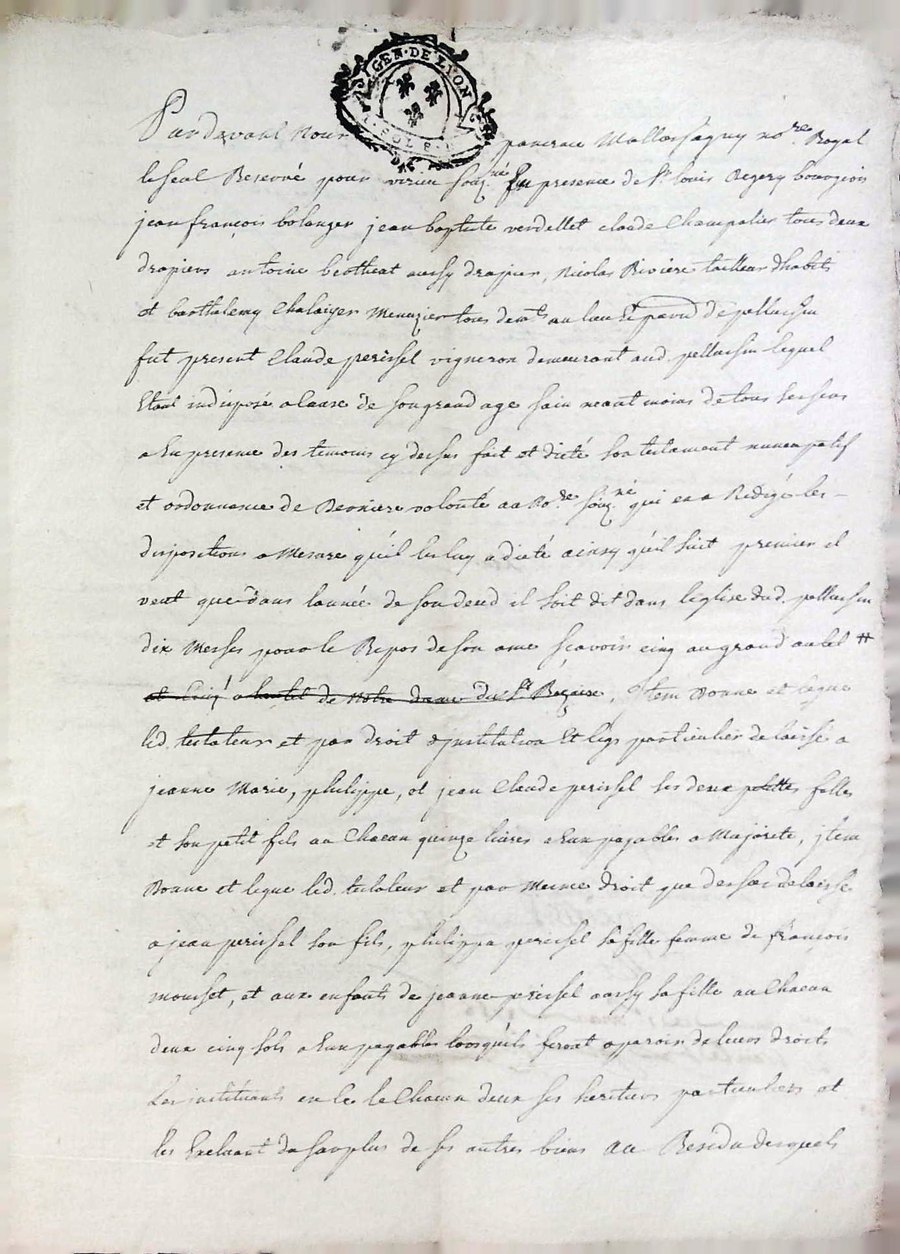 GEN. DE LYON
Pardevant Nous pancrace Mallassagny no.re Royal
le seul Reservé pour virieu souz.né En presence de Sr. louis Regery bourgeois
jean françois bolanger jean baptiste verdellet claude Champalier tous deux
drapiers antoine bertheat aussy drapier, Nicolas Riviere tailleur dhabits
et barthelemy Chalaiyer Menuzier tous dem.ts au lieu et parr. De pellussin
fut present Claude perissel vigneron demeurant aud. pellussin lequel
Etant indisposé a Cause de son grand age sain neantmoins de tous ses sens
a En presence des temoins cy dessus fait et dicté son testament nuncupatif
et ordonnance de Derniere volonté au No.re souz.né qui en a Redigé les
dispositions a Mesure qu'il les luy a dicté ainsy qu'il suit premier il
veut que dans lannée de son deced il soit dit dans leglise dud. pellussin
dix Messes pour le Repos de son ame scavoir cinq au grand autel #
et cinq a lautel de Notre dame du St. Rozaire, Item Donne et legue
led. testateur et par droit d'institution Et legs particulier delaisse a
jeanne Marie, philippe, et jean Claude perissel ses deux petittes filles
et son petit fils au Chacun quinze livres a Eux payables a Majorité, jtem
Donne et legue led. testateur et par Meme droit que dessus delaisse
a jean perissel son fils, philippa perissel sa fille femme de françois
mousset, et aux enfants de jeanne perissel aussy sa fille au Chacun
deux cinq sols a Eux payables lorsqu'ils feront aparoir de leurs droits
Les instituants en ce le Chacun deux ses heritiers particuliers et
les Excluant du surplus de ses autres biens au Residu desquels